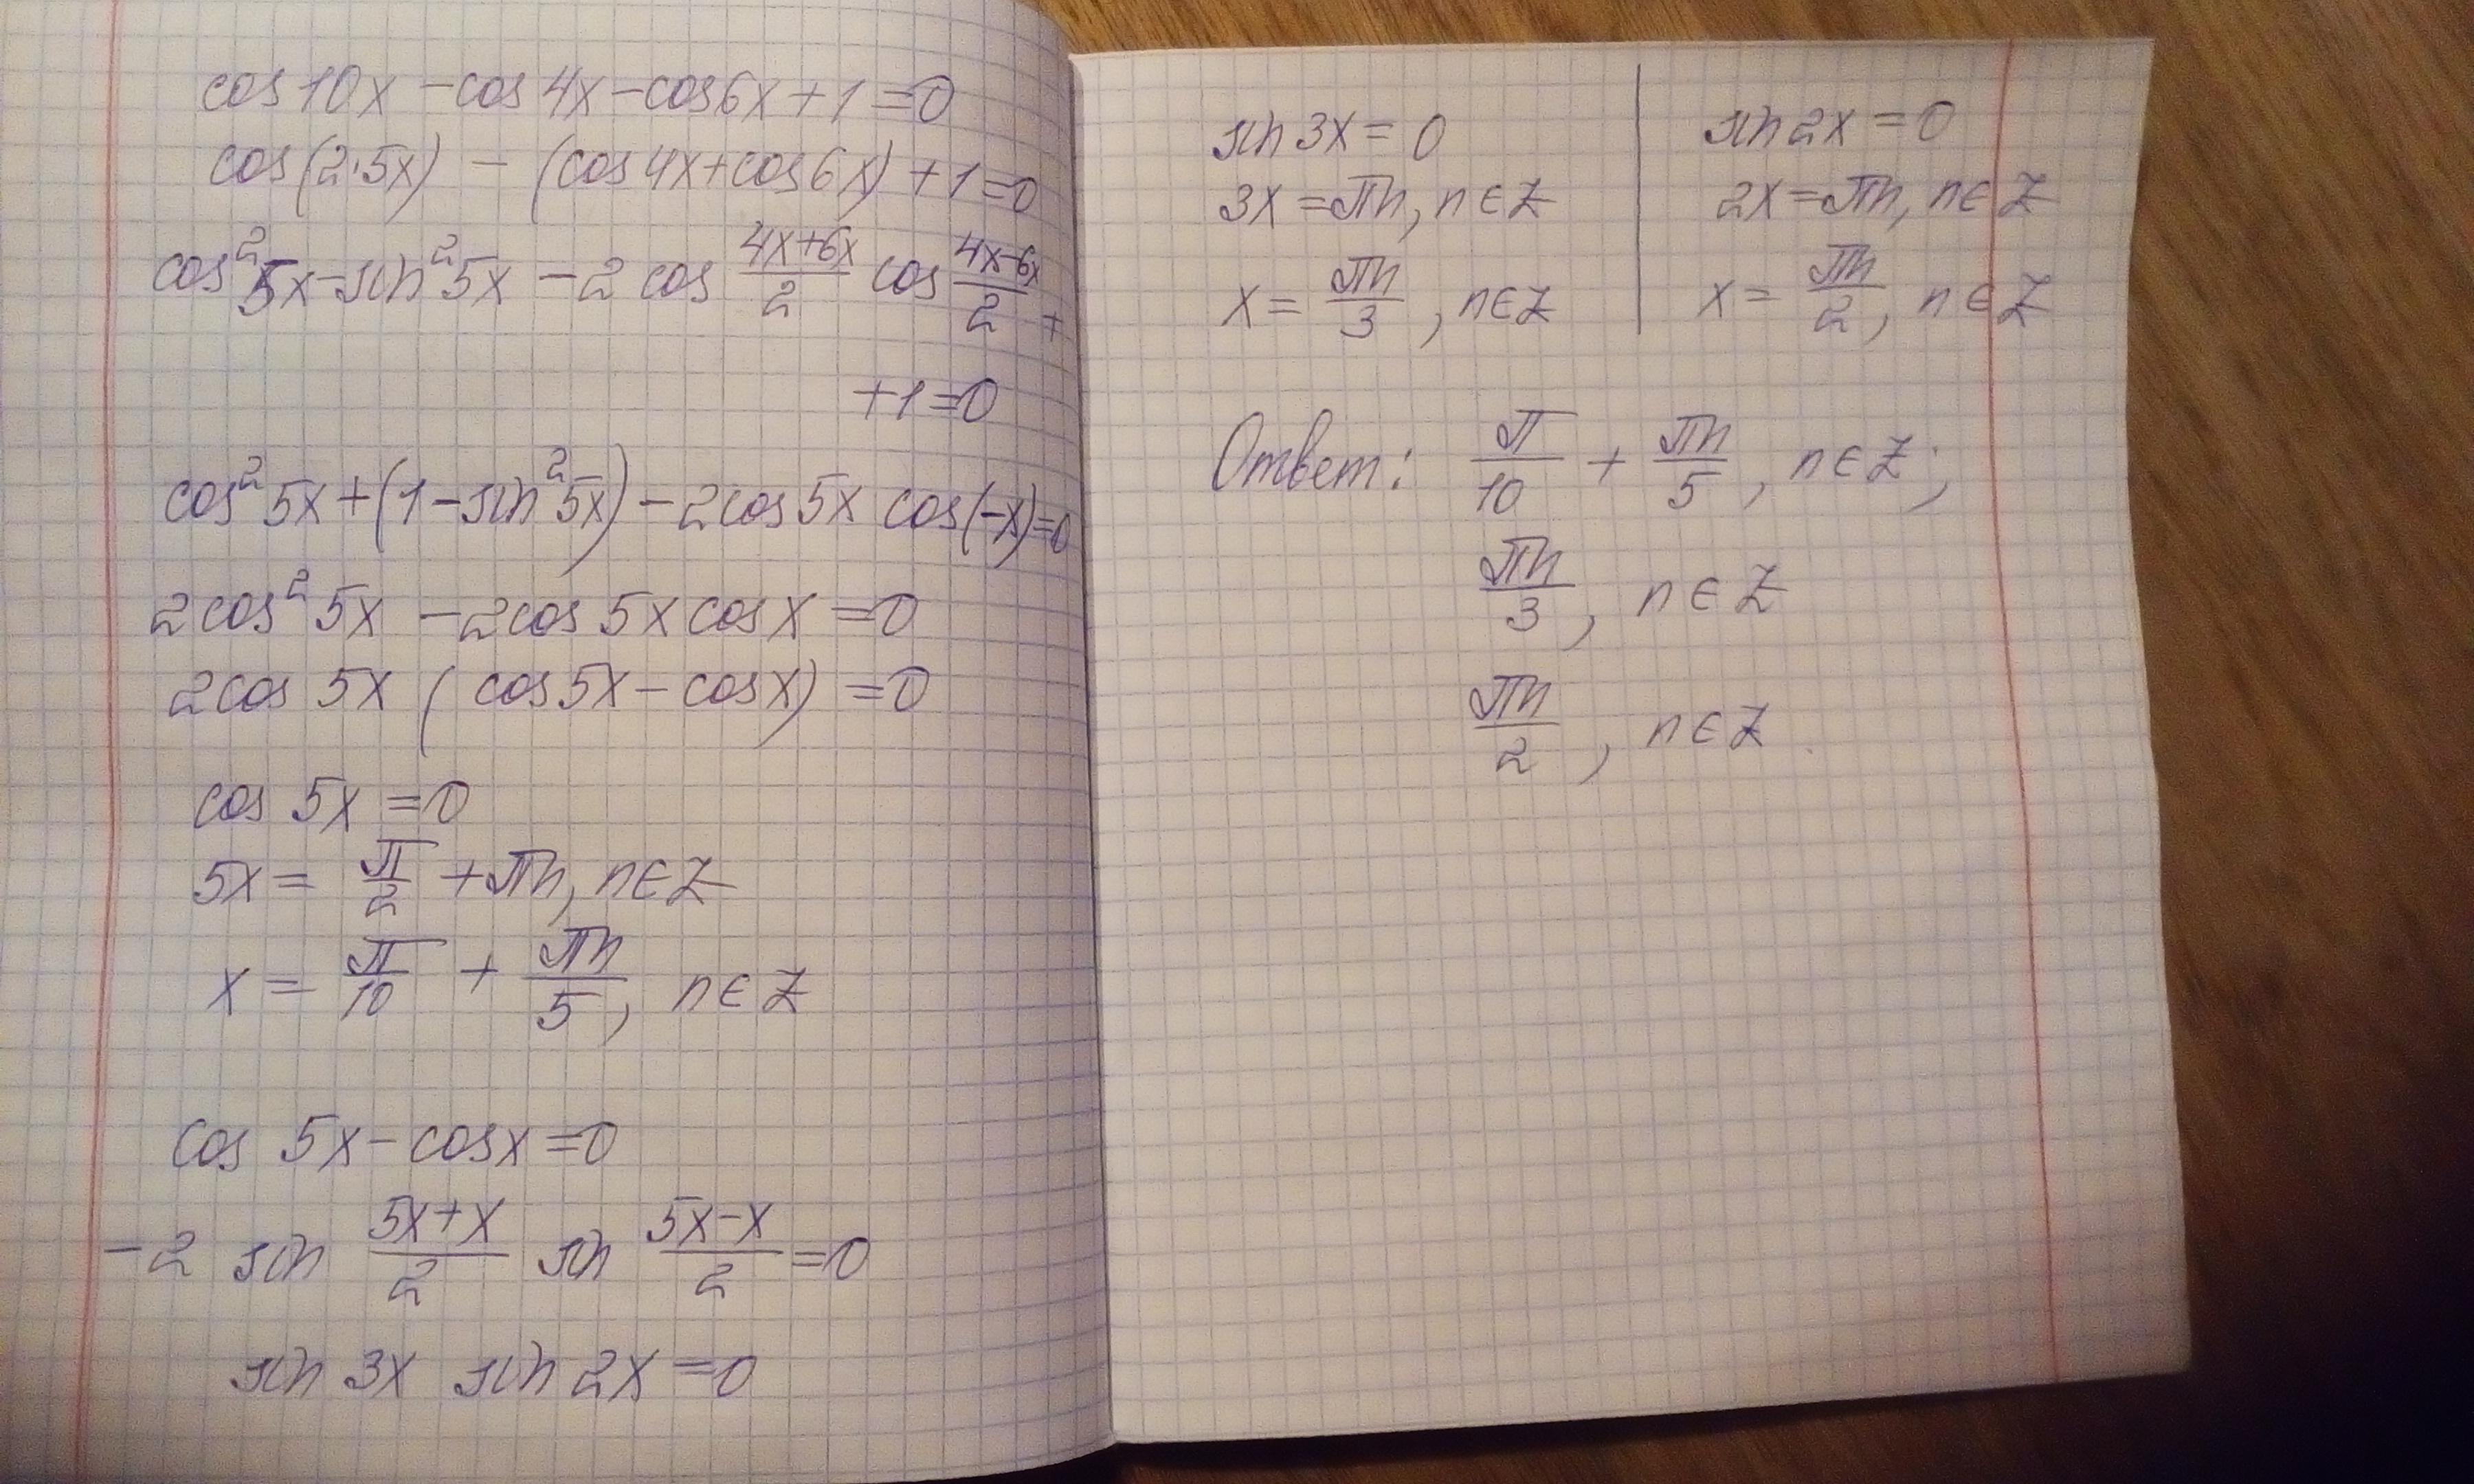 cos 10x − cos 4x − cos 6x + 1 = 0
cos(2·5x) − (cos 4x + cos 6x) + 1 = 0
cos² 5x − sin² 5x − 2 cos (4x+6x)/2 cos (4x−6x)/2 +
+1 = 0
cos² 5x + (1 − sin² 5x) − 2 cos 5x cos(−x) = 0
2 cos² 5x − 2 cos 5x cos x = 0
2 cos 5x (cos 5x − cos x) = 0
cos 5x = 0
5x = π/2 + πn, n ∈ Z
x = π/10 + πn/5, n ∈ Z
cos 5x − cos x = 0
−2 sin (5x+x)/2 sin (5x−x)/2 = 0
sin 3x sin 2x = 0
sin 3x = 0
3x = πn, n ∈ Z
x = πn/3, n ∈ Z
sin 2x = 0
2x = πn, n ∈ Z
x = πn/2, n ∈ Z
Ответ: π/10 + πn/5, n ∈ Z;
πn/3, n ∈ Z
πn/2, n ∈ Z.